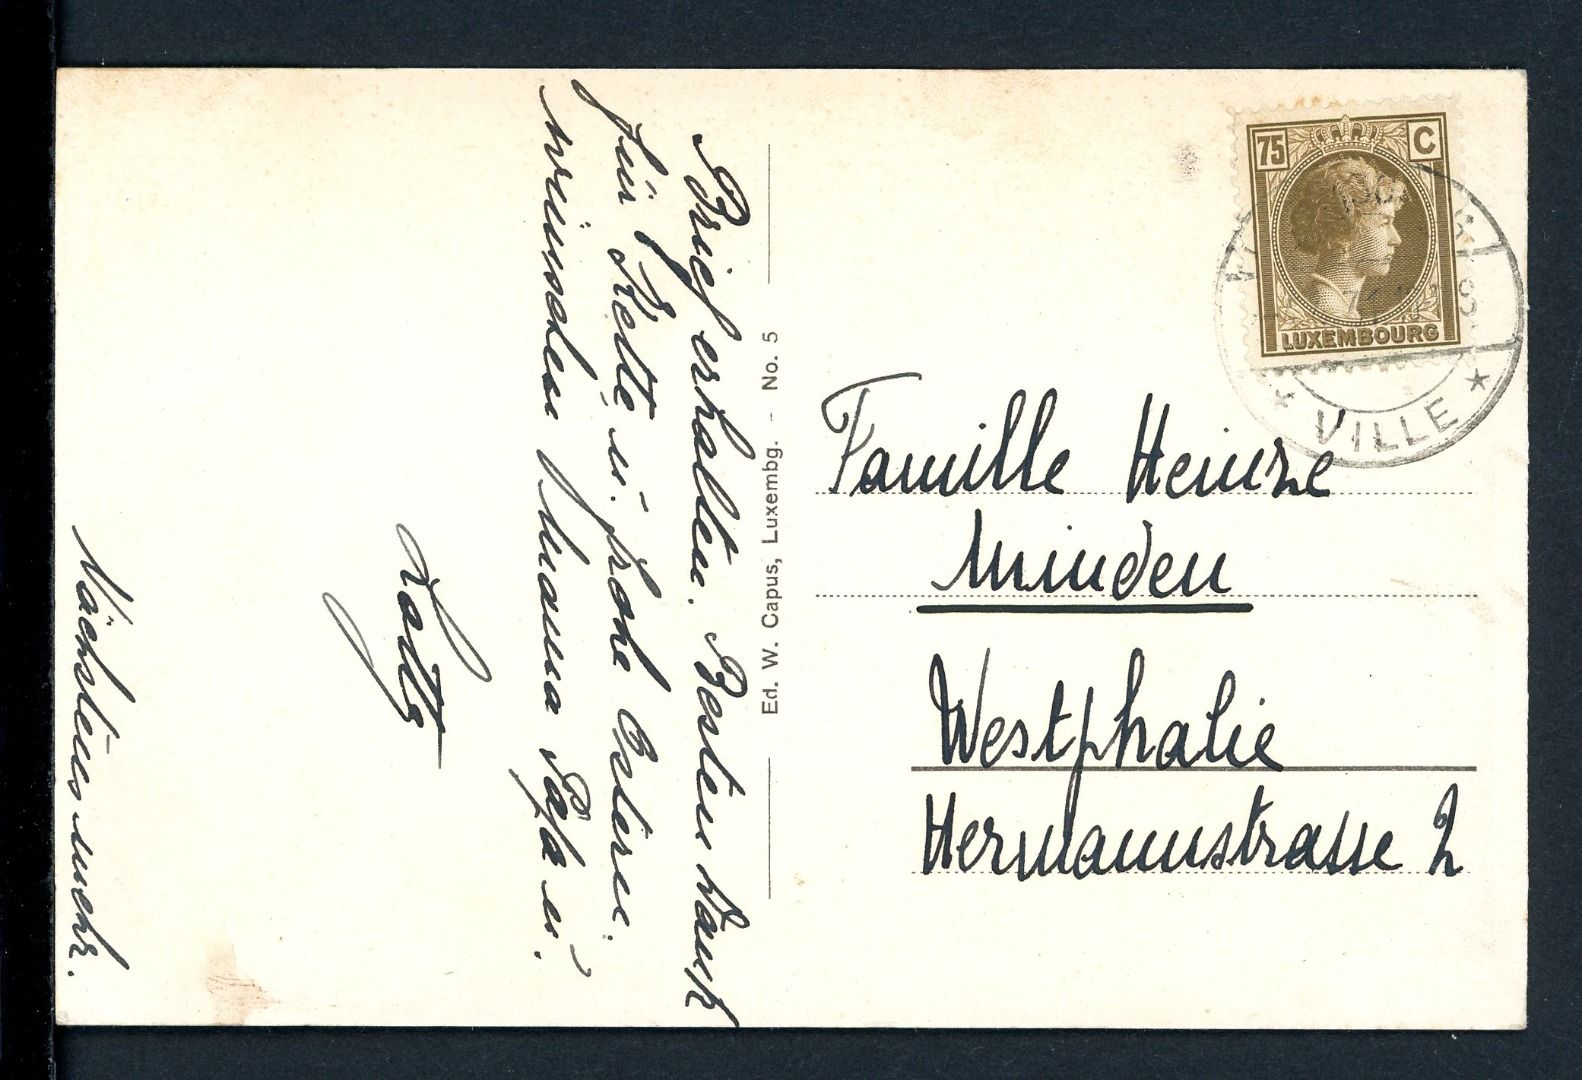 Brief erhalten. Besten Dank
für Kette u. frohe Ostern.
wünschen Mama Papa u.
Lotte
Nächstens mehr.
Ed. W. Capus, Luxembg. - No. 5
75 C
LUXEMBOURG
VILLE
Famille Heinze
Minden
Westphalie
Hermannstrasse 2